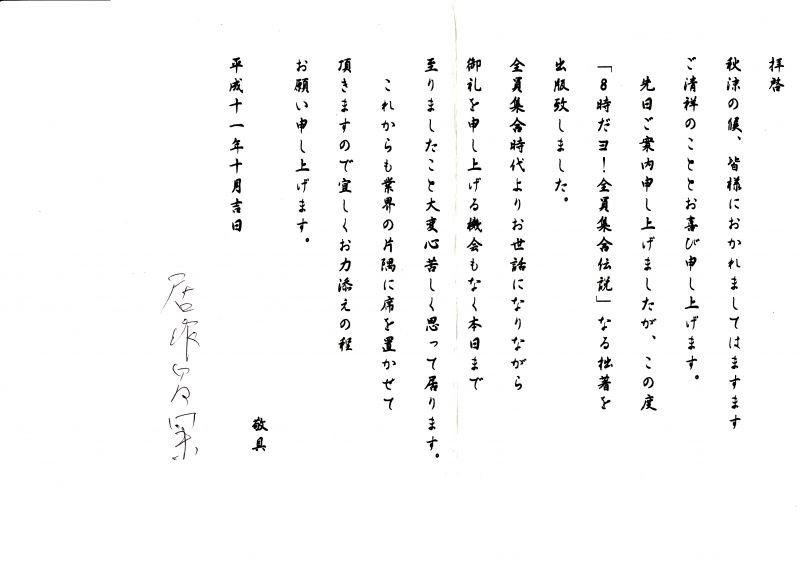 拝啓
秋涼の候、皆様におかれましてはますます
ご清祥のこととお喜び申し上げます。
先日ご案内申し上げましたが、この度
「８時だヨ！全員集合伝説」なる拙著を
出版致しました。
全員集合時代よりお世話になりながら
御礼を申し上げる機会もなく本日まで
至りましたこと大変心苦しく思って居ります。
これからも業界の片隅に席を置かせて
頂きますので宜しくお力添えの程
お願い申し上げます。
敬具
平成十一年十月吉日
居作昌果